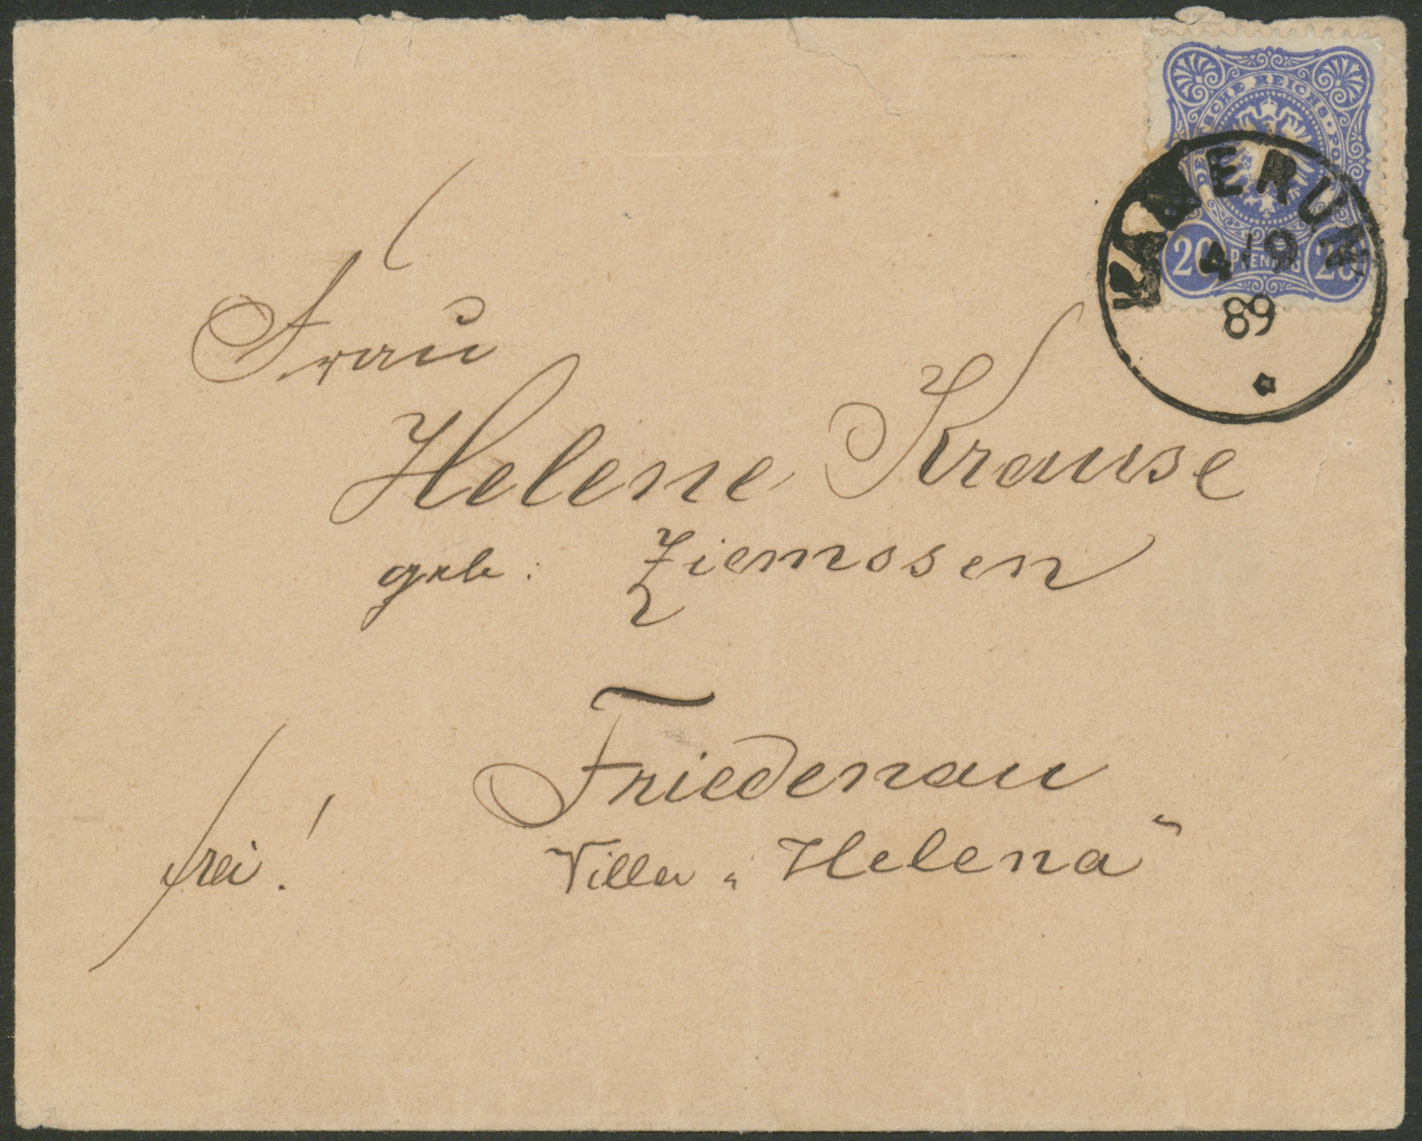 DEUTSCHE REICHS-POST
20 PFENNIG 20
KAMERUN
4/9
89
Frau
Helene Krause
geb: Ziemssen
Friedenau
Villa „Helena“
frei!